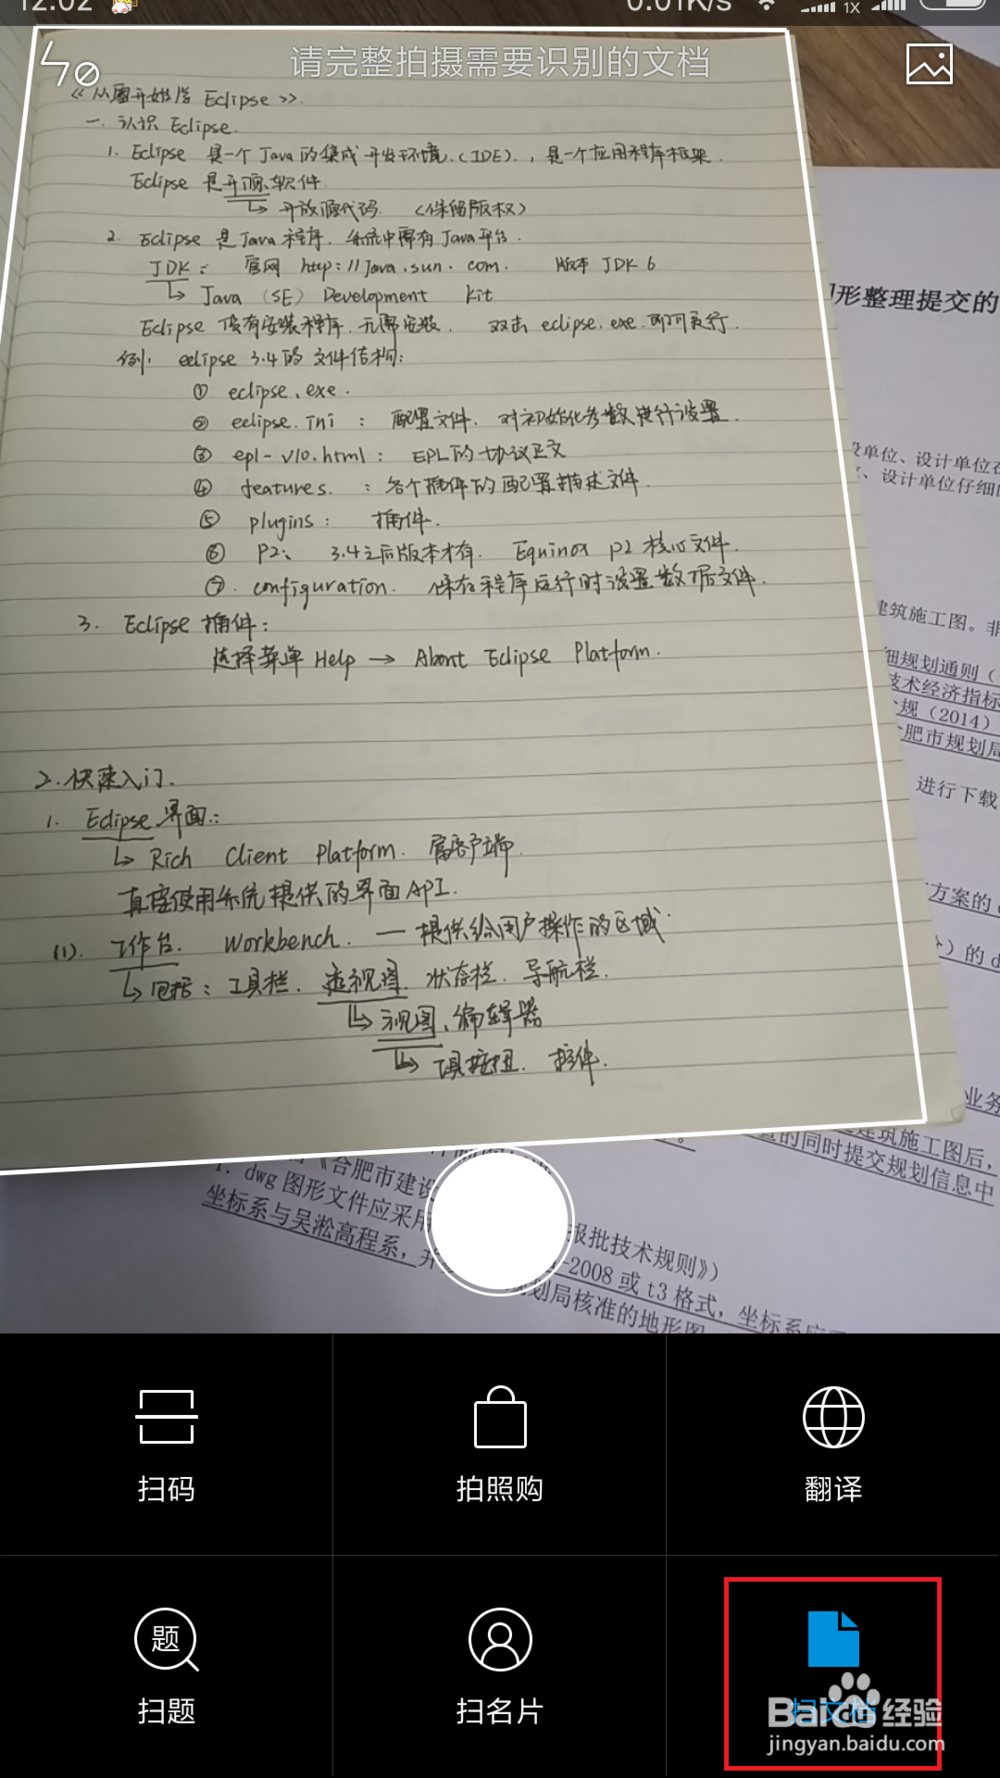 12:02 0.01K/s 1X
请完整拍摄需要识别的文档
《从零开始学 Eclipse》.
一. 认识 Eclipse.
1. Eclipse 是一个 Java 的集成开发环境.(IDE). , 是一个应用程序框架.
Eclipse 是开源软件.
↳ 开放源代码. (保留版权)
2. Eclipse 是 Java 程序. 系统中需有 Java 平台.
JDK: 官网 http://Java.sun.com. 版本 JDK 6
↳ Java (SE) Development Kit
Eclipse 没有安装程序. 无需安装. 双击 eclipse.exe.即可运行.
例: eclipse 3.4 的文件结构:
① eclipse.exe.
② eclipse.ini : 配置文件. 对初始化参数进行设置.
③ epl-v10.html: EPL的协议正文
④ features. : 各个插件的配置描述文件.
⑤ plugins: 插件.
⑥ P2: 3.4之后版本才有. Equinox p2 核心文件.
⑦. configuration. 保存程序运行时设置数据文件.
3. Eclipse 插件:
选择菜单 Help → About Eclipse Platform.
2. 快速入门.
1. Eclipse 界面:
↳ Rich Client Platform. 富客户端.
直接使用系统提供的界面 API.
(1). 工作台. Workbench. — 提供给用户操作的区域.
↳ 包括: 工具栏. 透视图. 状态栏. 导航栏.
↳ 视图、编辑器
↳ 工具按钮. 控件.
形整理提交的
设单位、设计单位在
、设计单位仔细
建筑施工图。非
细规划通则（
技术经济指标
规（2014）
合肥市规划局
进行下载
方案的
）的 d
业务
建筑施工图后，
的同时提交规划信息中
《合肥市建设
报批技术规则》）
1. dwg 图形文件应采用
-2008 或 t3 格式，坐标系应
坐标系与吴淞高程系，并
规划局核准的地形图
扫码 拍照购 翻译
题
扫题 扫名片 扫文档
Baidu经验
jingyan.baidu.com